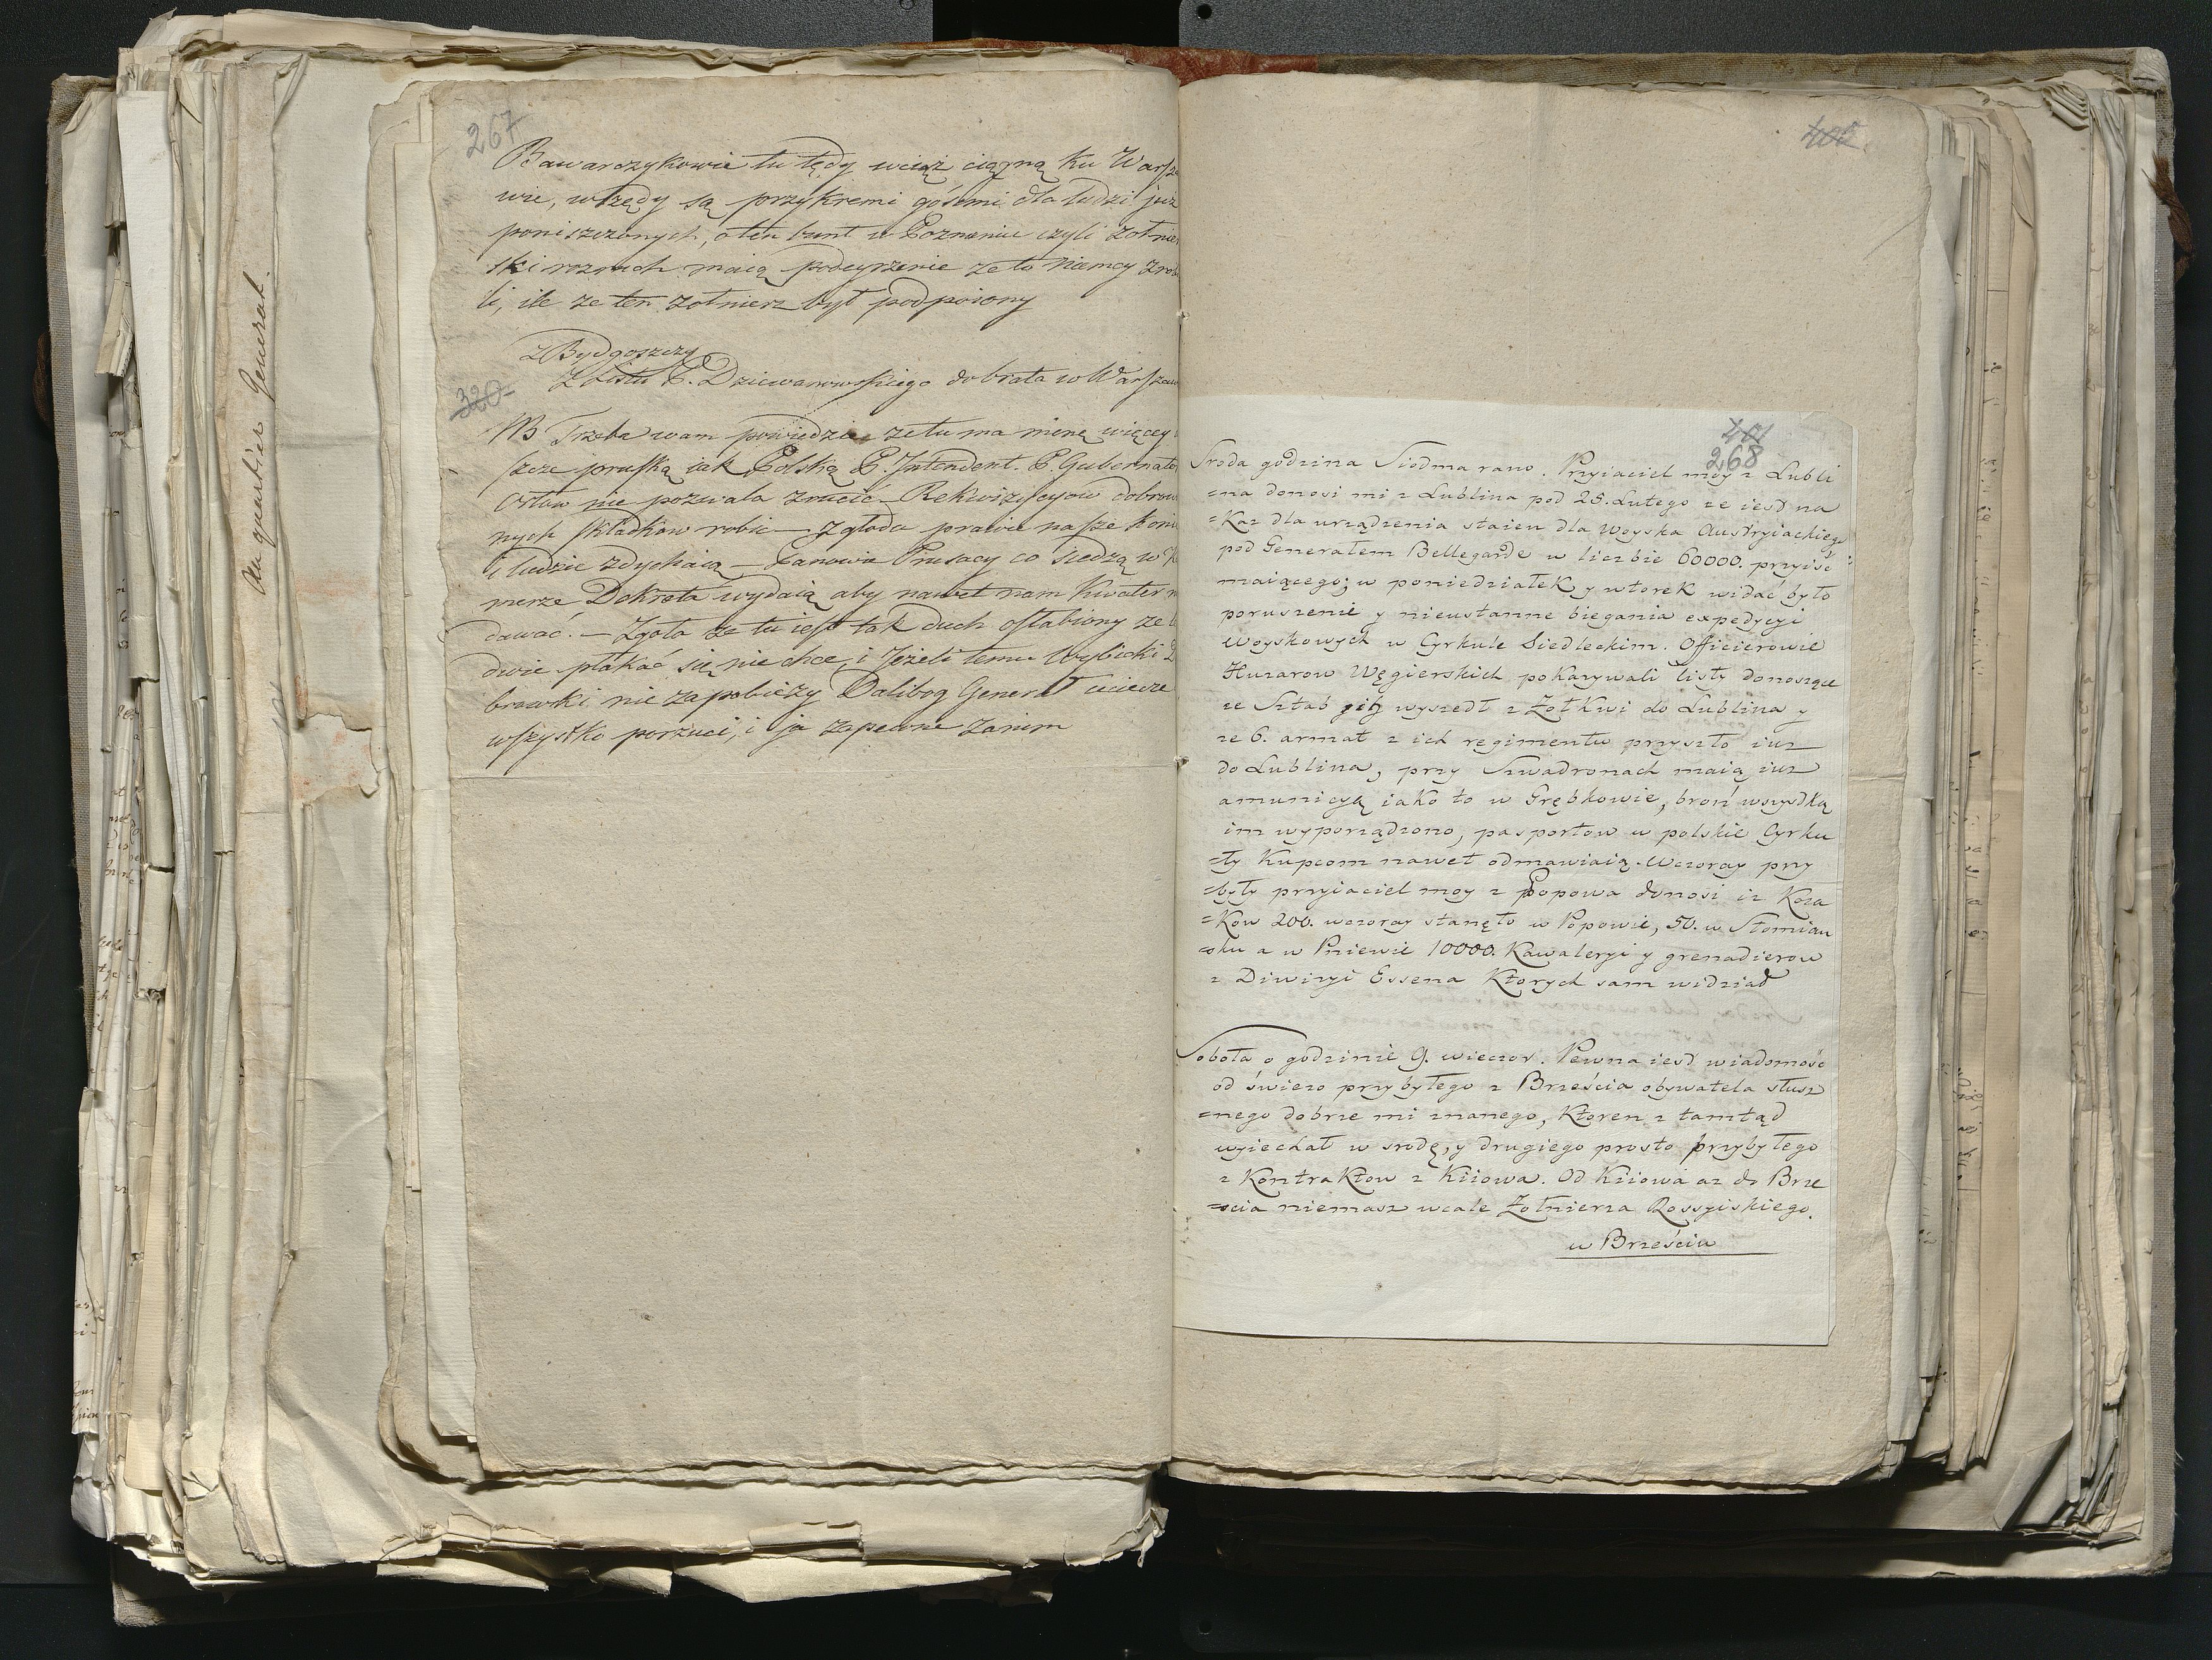 267
Bawarczykowie tu tędy wciąż ciągną ku Warsza
wie, wszędy są przykremi gośćmi dla ludzi już
poniszczonych, o ten bunt w Poznaniu czyli żołnier
ski rozruch maią podeyrzenie że to Niemcy zrobi
li, ile że ten żołnierz był podpoiony
z Bydgoszczy
Z Listu P. Dziewanowskiego do brata w Warszaw
320
NB Trzeba wam powiedzieć że tu ma minę więcey
szcze pruską iak Polską P. Intendent. P. Gubernator
Orłow nie pozwala zrucić Rekwizycyow dobrow
nych składkow robić — z głodu prawie nasze konie
i ludzie zdychaią — Panowie Prusacy co siedzą w K
merze Dekreta wydaią aby nawet nam kwater n
dawać. — Zgoła że tu iest tak duch osłabiony że
dwie płakać się nie chce, i Jeżeli temu Wybicki D
browski nie zapobieży Dalibog Generał uciecze
wszystko porzuci, i ja zapewne zanim
Au quartier General.
402
401
268
Sroda godzina Siodma rano. Przyiaciel moy z Lubli
=na donosi mi z Lublina pod 25. Lutego ze iest na
=Kaz dla urządzenia staien dla Woyska Austryiackiego
pod Generałem Bellegarde w liczbie 60000. przyiść
maiącego; w poniedziałek y wtorek widać było
poruszenie y nieustanne biegania expedycyi
Woyskowych w Cyrkule Siedleckim. Officierowie
Huzarow Węgierskich pokazywali listy donoszące
ze Sztab ich wyszedł z Żołkwi do Lublina y
ze 6. armat z ich regimentu przyszło iuz
do Lublina, przy Szwadronach maią iuz
amunicyą iako to w Grębkowie, broń wszystką
im wyporządzono, pasportow w polskie Cyrku
=ły Kupcom nawet odmawiaią. Wczoray przy
=były przyiaciel moy z Popowa donosi iz Koza
=Kow 200. wczoray stanęło w Popowie, 50. w Słomian
=sku a w Pniewie 10000. Kawaleryi y grenadierow
z Diwizyi Essena Ktorych sam widział
Sobota o godzinie 9. wieczor. Pewna iest wiadomość
od świezo przybyłego z Brześcia obywatela słusz
=nego dobrze mi znanego, Ktoren z tamtąd
wyiechał w srodę, y drugiego prosto przybyłego
z Kontraktow z Kiiowa. Od Kiiowa az do Brze
=scia niemasz wcale Żołnierza Rossyiskiego.
w Brześciu